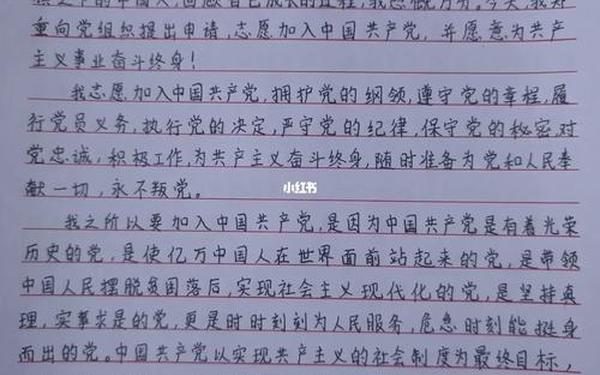 族之下的中国人,回顾自己成长的过程,我感慨万分。今天,我郑
重向党组织提出申请,志愿加入中国共产党,并愿意为共产
主义事业奋斗终身!
我志愿加入中国共产党,拥护党的纲领,遵守党的章程,履
行党员义务,执行党的决定,严守党的纪律,保守党的秘密,对
党忠诚,积极工作,为共产主义奋斗终身,随时准备为党和人民牺
献一切,永不叛党。
小红书
我之所以要加入中国共产党,是因为中国共产党是有着光荣
历史的党,是使亿万中国人在世界面前站起来的党,是带领
中国人民摆脱贫困落后,实现社会主义现代化的党,是坚持真
理,实事求是的党,更是时时刻刻为人民服务,危急时刻能挺身
而出的党。中国共产党以实现共产主义的社会制度为最终目标,